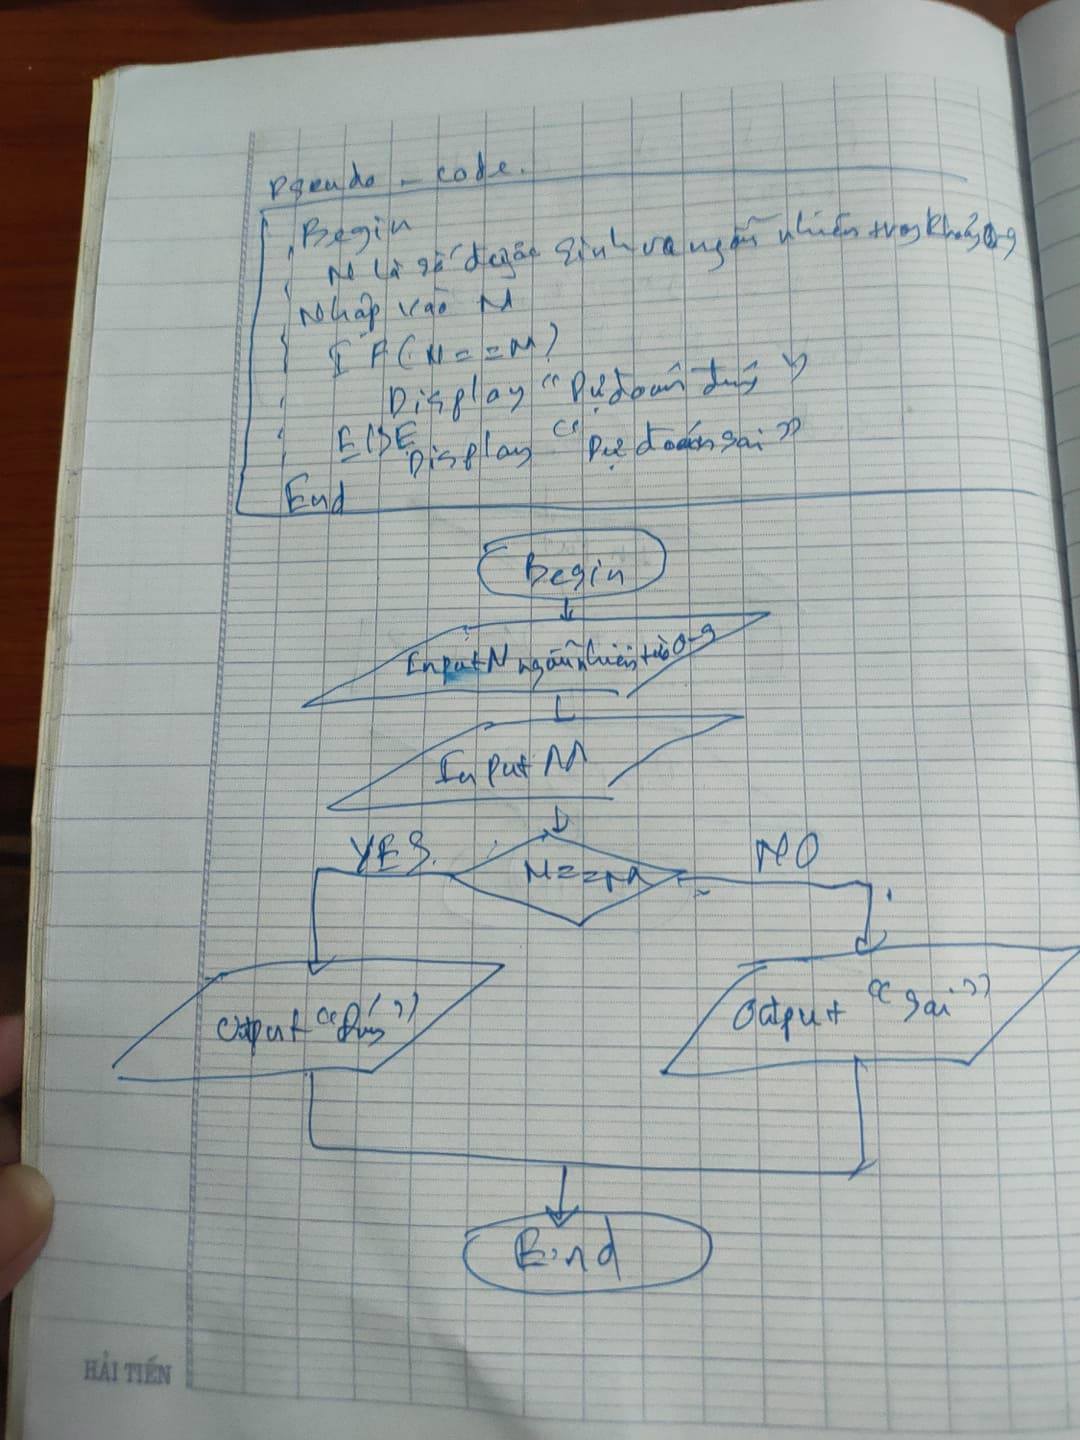 Pseudo - code.
Begin
N là số được sinh ra ngẫu nhiên trong khoảng 0-9
Nhập vào M
IF (N == M)
Display "Dự đoán đúng"
ELSE
Display "Dự đoán sai"
End
Begin
Input N ngẫu nhiên từ 0-9
Input M
YES.
N==M
NO
Output "Đúng"
Output "Sai"
End
HẢI TIẾN